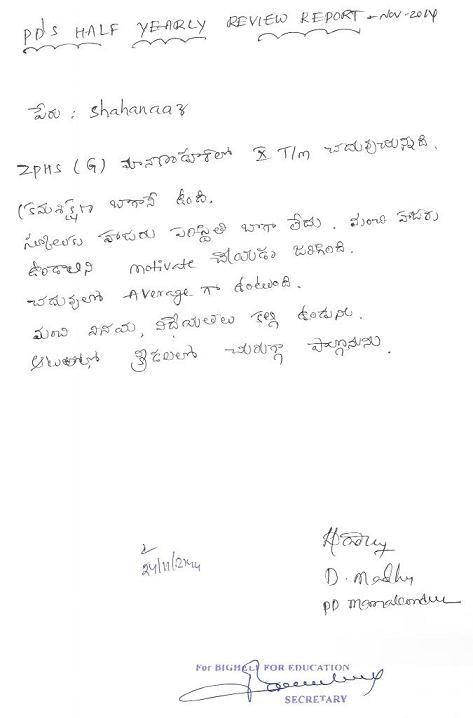 PD's HALF YEARLY REVIEW REPORT - Nov-2014
పేరు : Shahanaaz
ZPHS (G) మానకొండూర్‌లో X T/m చదువుచున్నది.
క్రమశిక్షణ బాగానే ఉంది.
స్కూలుకు హాజరు పరిస్థితి బాగా లేదు. మంచి హాజరు
ఉండాలని motivate చేయడం జరిగింది.
చదువులో Average గా ఉంటుంది.
మంచి వినయ, విధేయతలు కల్గి ఉండును.
ఆటలల్లో క్రీడలలో చురుగ్గా పాల్గొనును.
24/11/2014
D. Madhu
PD Manakondur
For BIGHELP FOR EDUCATION
SECRETARY